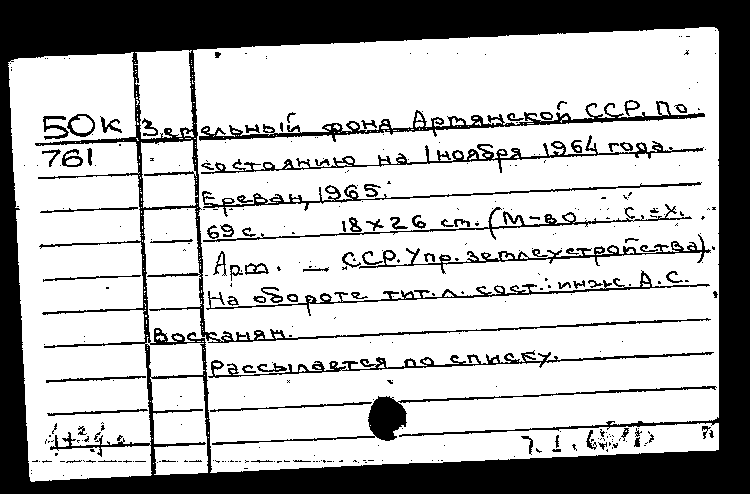 50К Земельный фонд Армянской ССР. По
761 состоянию на 1 ноября 1964 года.
Ереван, 1965.
69 с. 18×26 см. (М-во с.-х.
Арм. — ССР. Упр. землеустройства).
На обороте тит. л. сост.: инж. А.С.
Восканян.
Рассылается по списку.